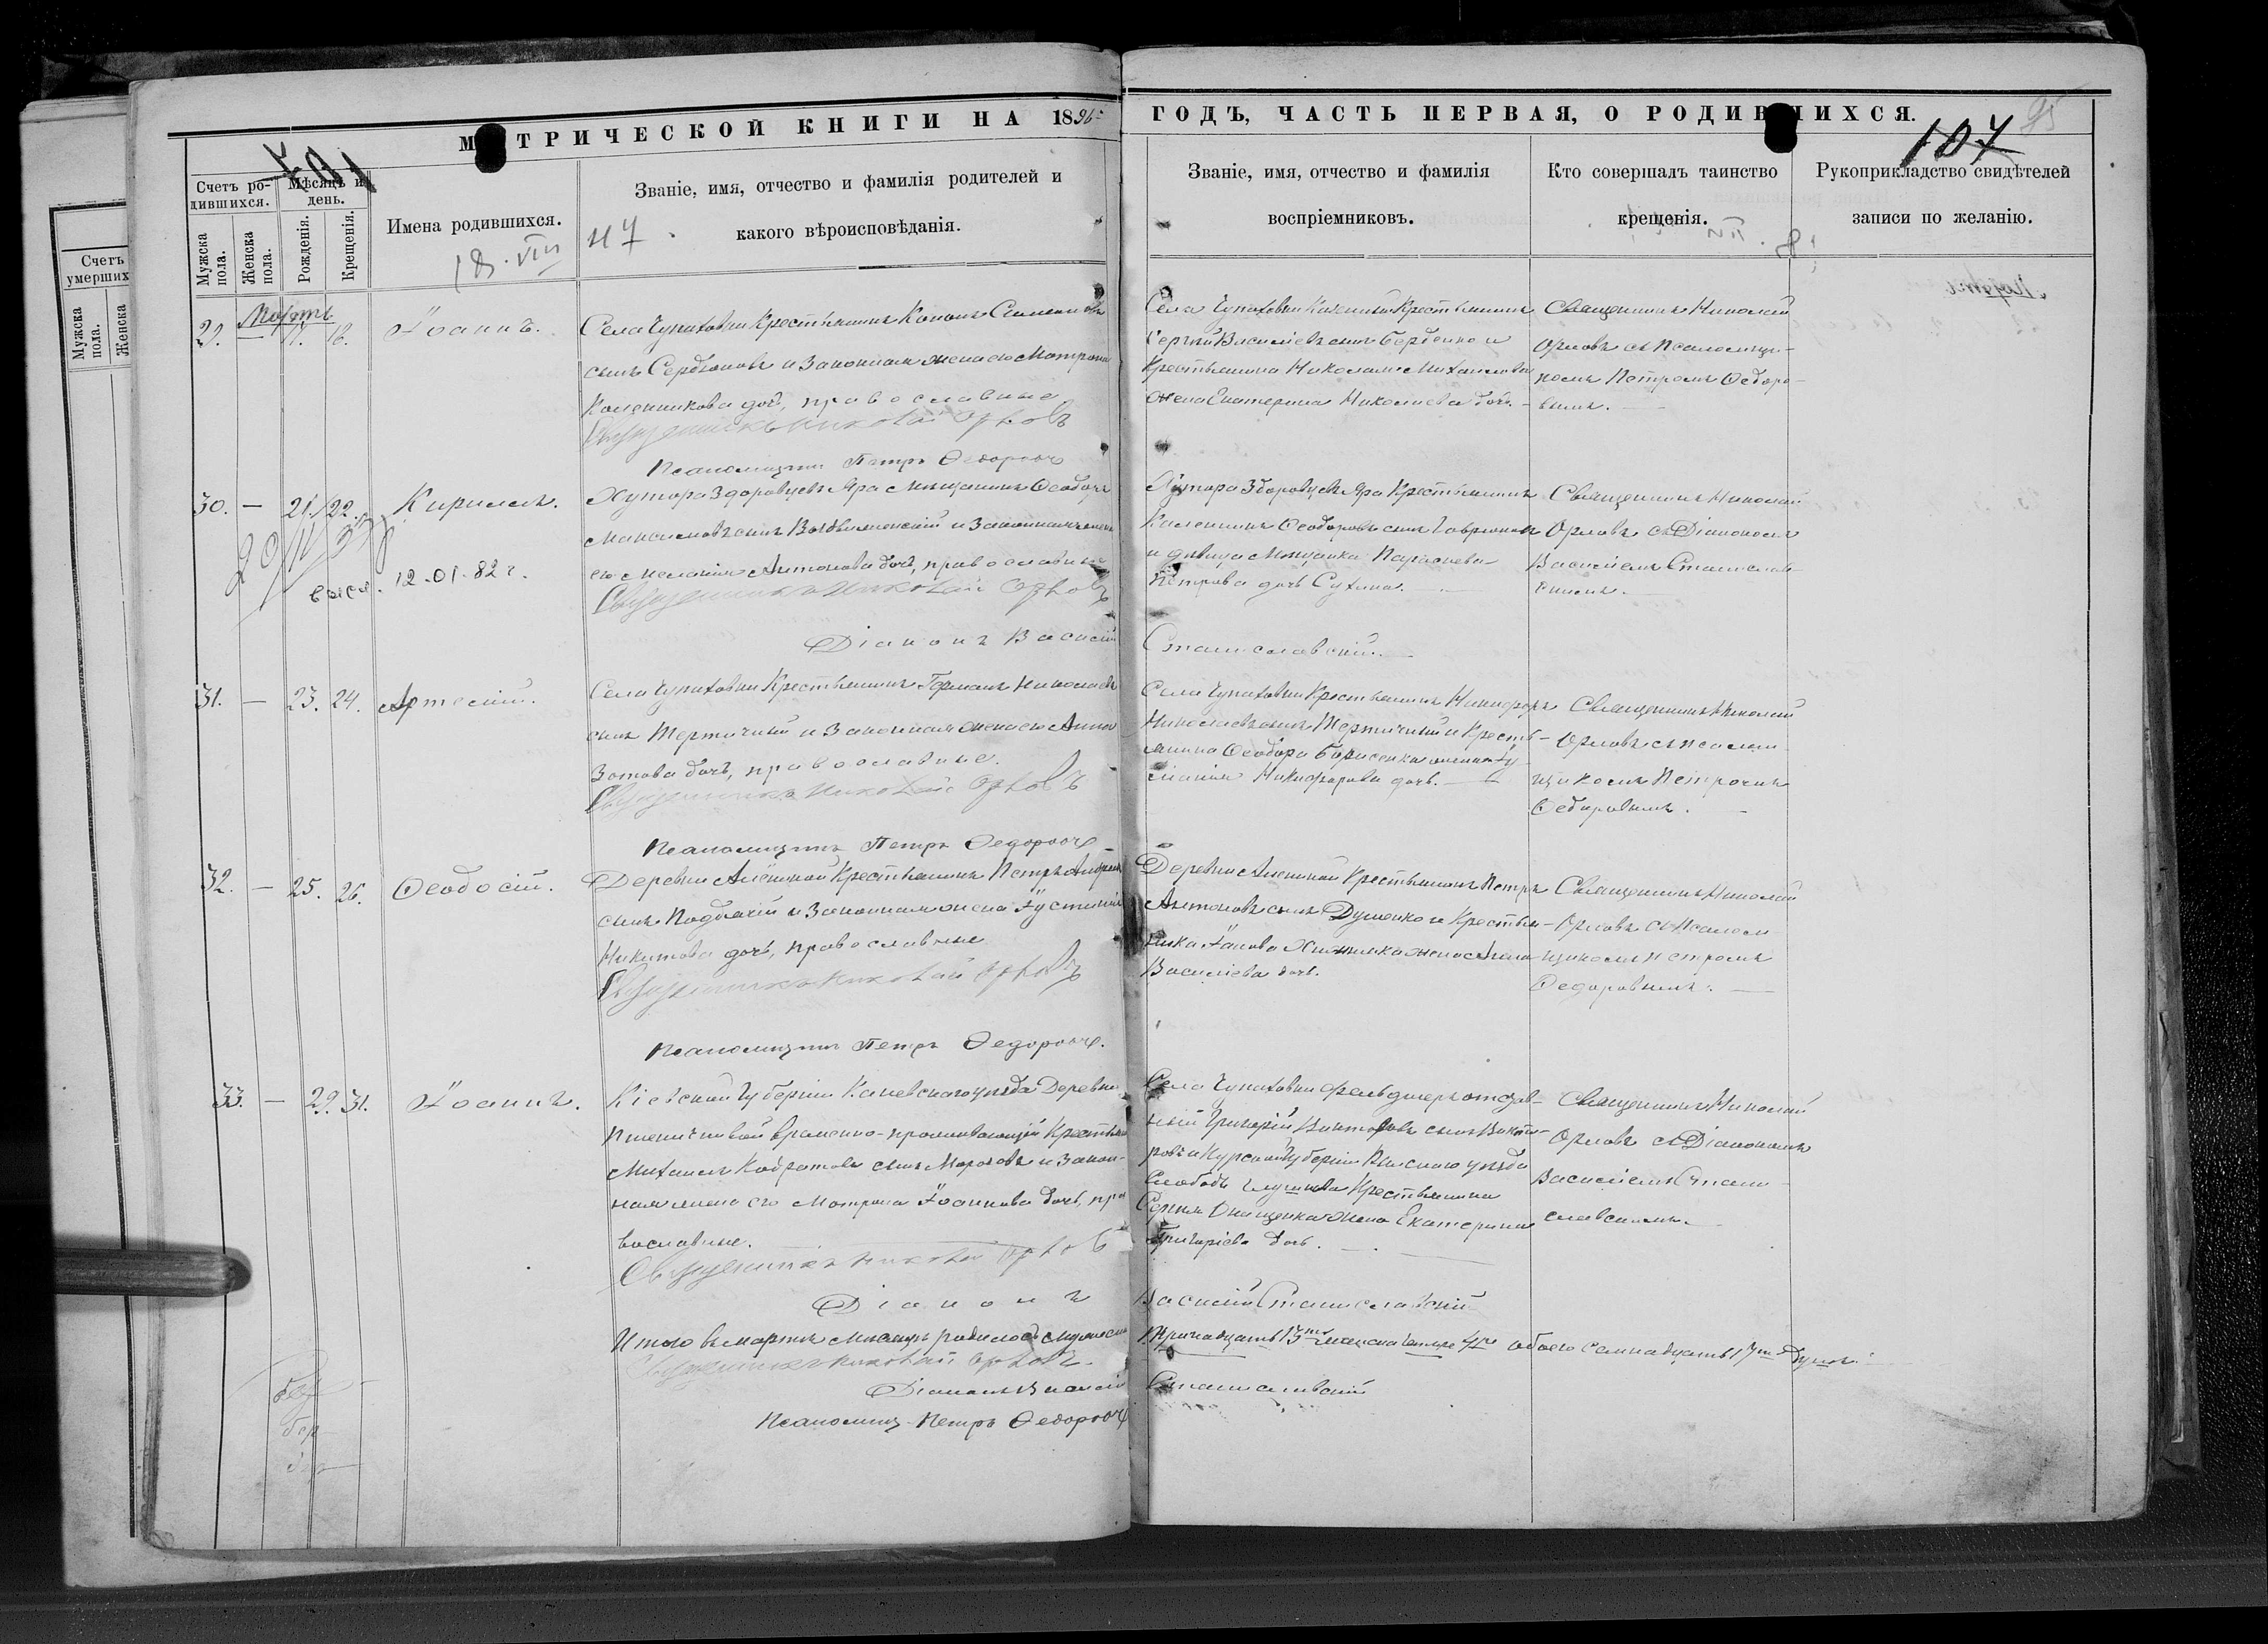 МЕТРИЧЕСКОЙ КНИГИ НА 1896
ГОДЪ, ЧАСТЬ ПЕРВАЯ, О РОДИВШИХСЯ.
107
95
Счетъ умерших
Мужска пола.
Женска
Счетъ ро-
дившихся.
Мѣсяцъ и
день.
Мужска пола.
Женска пола.
Рожденія.
Крещенія.
Имена родившихся.
18.VIII
47
Званіе, имя, отчество и фамилія родителей и
какого вѣроисповѣданія.
Званіе, имя, отчество и фамилія
воспріемниковъ.
Кто совершалъ таинство
крещенія.
Рукоприкладство свидѣтелей
записи по желанію.
Мартъ
Іоаннъ.
Села Чупаховки Крестьянинъ Кононъ
сынъ Сердюковъ и Законная жена его Матрона
дочь, православные
Священникъ Николай Орловъ
Псаломщикъ Петръ Ѳедоровъ
Села Чупаховки Крестьянинъ
Сергій Василіевъ сынъ Бербенко и
Крестьянина Николая Михаилова
жена Екатерина Николаева дочь.
Священникъ Николай
Орловъ съ Псаломщи-
комъ Петромъ Ѳедоро-
вымъ.
30. — 21. 22. Кириллъ.
12.01.82 г.
Хутора Здоровцевъ Яра Мѣщанинъ Ѳеодоръ
Максимовъ сынъ и Законная жена
его Меланія Антонова дочь, православные
Священникъ Николай Орловъ
Діаконъ Василій
Станиславскій.
Хутора Здоровцевъ Яра Крестьянинъ
Каленикъ Ѳеодоровъ сынъ
и дѣвица Мѣщанка Параскева
Петрова дочь Сухина.
Священникъ Николай
Орловъ съ Діакономъ
Василіемъ Станислав-
скимъ.
31. — 23. 24. Артемій.
Села Чупаховки Крестьянинъ Германъ Николаевъ
сынъ Тертичный и Законная жена его Анна
Зотова дочь, православные.
Священникъ Николай Орловъ
Псаломщикъ Петръ Ѳедоровъ
Села Чупаховки Крестьянинъ Никифоръ
Николаевъ сынъ Тертичный и Кресть-
янина Ѳеодора Борисенка жена
Никифорова дочь.
Священникъ Николай
Орловъ съ Псалом-
щикомъ Петромъ
Ѳедоровымъ.
32. — 25. 26. Ѳеодосій.
Деревни Крестьянинъ Петръ
сынъ и Законная жена Іустинія
Никитова дочь, православные
Священникъ Николай Орловъ
Псаломщикъ Петръ Ѳедоровъ.
Деревни Крестьянинъ Петръ
Антоновъ сынъ Душенко и Крестьян-
жена
Василіева дочь.
Священникъ Николай
Орловъ съ Псалом-
щикомъ Петромъ
Ѳедоровымъ.
33. — 29. 31. Іоаннъ.
Кіевской Губерніи Каневскаго уѣзда Деревни
Пшеничниковой временно-проживающій Крестьян
Михаилъ Кодратовъ сынъ Морозовъ и Закон-
ная жена его Матрона Іоаннова дочь, пра
вославные.
Священникъ Николай Орловъ
Діаконъ
Василій Станиславскій
Села Чупаховки фельдшеръ
Григорій сынъ
Курской Губерніи уѣзда
Слободы Крестьянина
Сергія жена Екатерина
Григоріева дочь.
Священникъ Николай
Орловъ съ Діакономъ
Василіемъ Стани-
славскимъ.
Итого въ мартѣ мѣсяцѣ родилось мужеска
тринадцать 13 женска четыре 4 обоего семнадцать 17 душъ.
Священникъ Николай Орловъ.
Діаконъ Василій
Станиславскій
Псаломщ. Петръ Ѳедоровъ